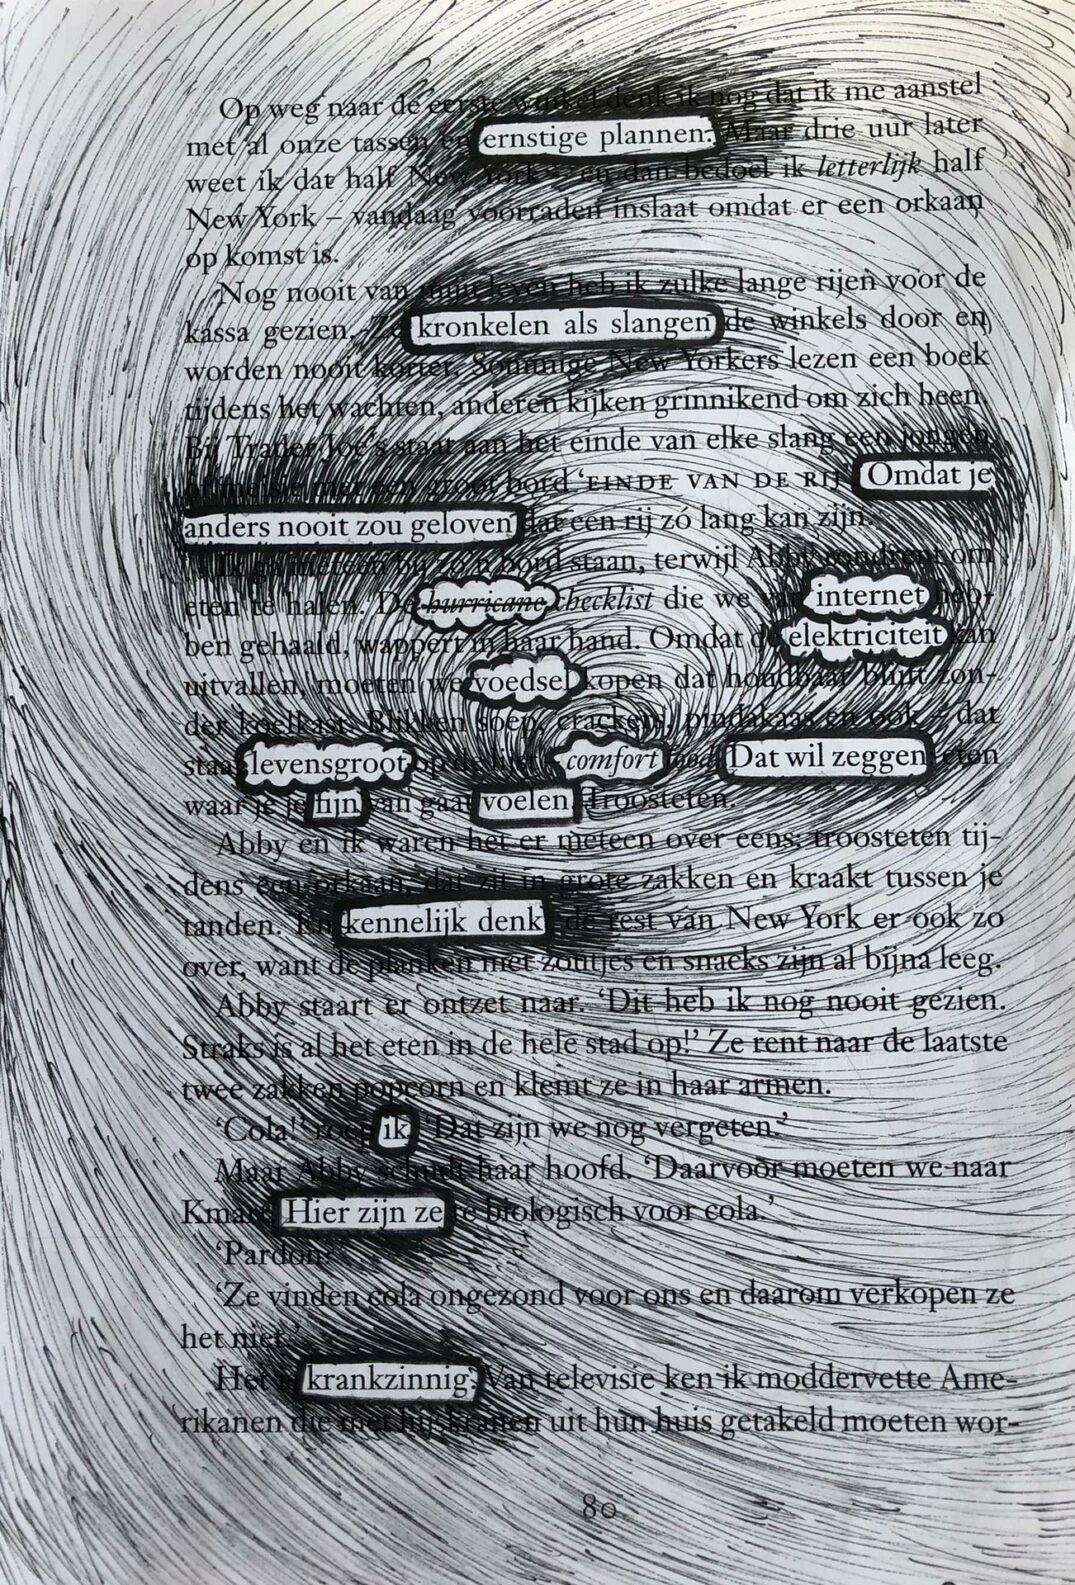 Op weg naar de eerste winkel denk ik nog dat ik me aanstel
met al onze tassen en ernstige plannen. Maar drie uur later
weet ik dat half New York – en dan bedoel ik letterlijk half
New York – vandaag voorraden inslaat omdat er een orkaan
op komst is.
Nog nooit van mijn leven heb ik zulke lange rijen voor de
kassa gezien. Ze kronkelen als slangen de winkels door en
worden nooit korter. Sommige New Yorkers lezen een boek
tijdens het wachten, anderen kijken grinnikend om zich heen.
Bij Trader Joe's staat aan het einde van elke slang een jongen
of meisje met een groot bord 'EINDE VAN DE RIJ' Omdat je
anders nooit zou geloven dat een rij zó lang kan zijn.
Ik ga meteen bij zo'n bord staan, terwijl Abby rondrent om
eten te halen. De hurricane checklist die we van internet heb-
ben gehaald, wappert in haar hand. Omdat de elektriciteit kan
uitvallen, moeten we voedsel kopen dat houdbaar blijft zon-
der koelkast. Blikken soep, crackers, pindakaas en ook – dat
staat levensgroot op de lijst – comfort food. Dat wil zeggen: eten
waar je je fijn van gaat voelen. Troosteten.
Abby en ik waren het er meteen over eens: troosteten tij-
dens een orkaan, dat zit in grote zakken en kraakt tussen je
tanden. En kennelijk denkt de rest van New York er ook zo
over, want de planken met zoutjes en snacks zijn al bijna leeg.
Abby staart er ontzet naar. 'Dit heb ik nog nooit gezien.
Straks is al het eten in de hele stad op!' Ze rent naar de laatste
twee zakken popcorn en klemt ze in haar armen.
'Cola!' roep ik. 'Dat zijn we nog vergeten.'
Maar Abby schudt haar hoofd. 'Daarvoor moeten we naar
Kmart. Hier zijn ze te biologisch voor cola.'
'Pardon?'
'Ze vinden cola ongezond voor ons en daarom verkopen ze
het niet.'
Het is krankzinnig. Van televisie ken ik moddervette Ame-
rikanen die met hijskranen uit hun huis getakeld moeten wor-
80